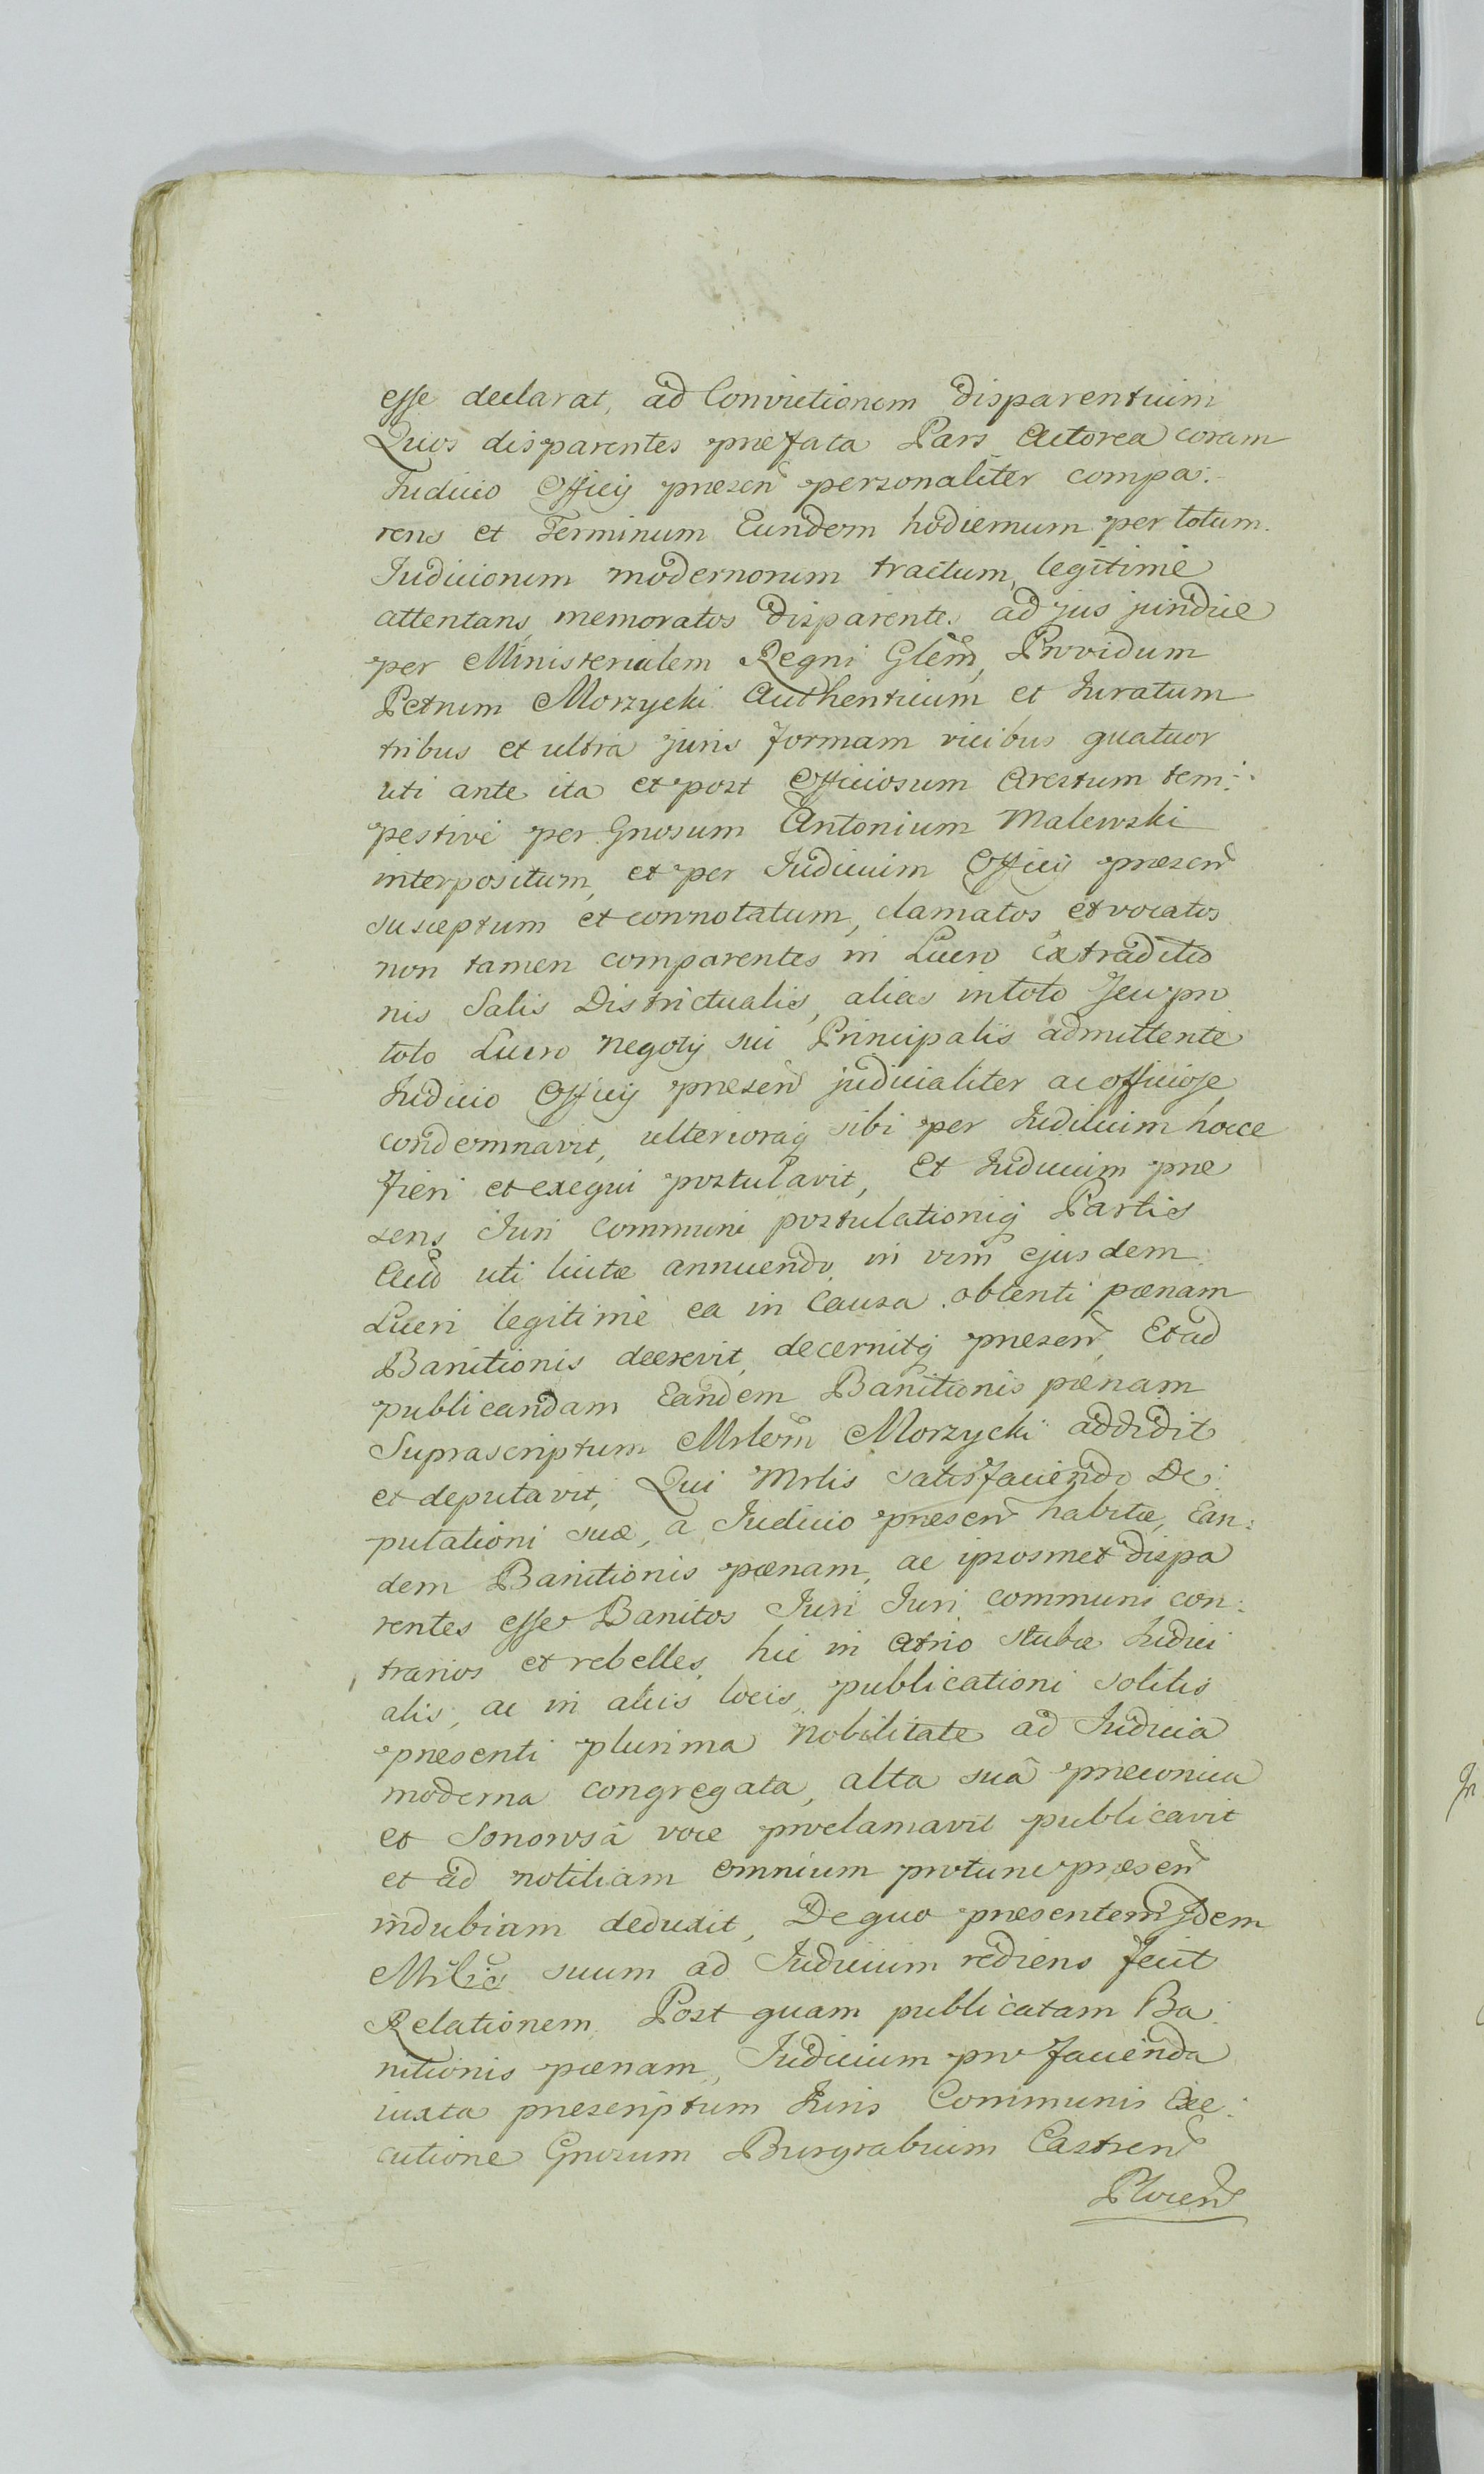 esse declarat, ad Convictionem disparentium
Quos disparentes præfata Pars Actorea coram
Iudicio Officij præsen personaliter compa:
rens et Terminum Eundem hodiernum per totum
Iudiciorum modernorum tractum, legitimè
attentans, memoratos disparentes ad jus juridice
per Ministerialem Regni Glem, Providum
Petrum Morzycki Authenticum et Iuratum
tribus et ultra juris formam vicibus quatuor
uti ante ita et post Officiosum Arestum tem:
pestivè per Gnosum Antonium Malewski
interpositum, et per Iudicium Officij præsen
susceptum et connotatum, clamatos et vocatos
non tamen comparentes in Lucro Extraditio
nis Salis Districtualis, alias in toto seu pro
toto Lucro negotij sui Principalis admittente
Iudicio Officij præsen judicialiter ac officiose
condemnavit, ulterioraq sibi per Iudicium hocce
fieri et exequi postulavit, Et Iudicium præ
sens Iuri communi postulationiq Partis
Actoreæ uti licitæ annuendo, in vim ejusdem
Lucri legitimè ea in Causa obtenti pænam
Banitionis decrevit, decernitq præsen, Et ad
publicandam Eandem Banitionis pænam
Suprascriptum Mrlem Morzycki addidit
et deputavit, Qui Mrlis satisfaciendo De:
putationi suæ, a Iudicio præsen habitæ, Ean:
dem Banitionis pænam, ac ipsosmet dispa
rentes esse Banitos Iuri Iuri communi con:
trarios et rebelles, hic in Atrio Stubæ Iudici
alis, ac in aliis locis, publicationi solitis
præsenti plurima Nobilitate ad Iudicia
moderna congregata, alta suâ præconica
et Sonorosâ voce proclamavit publicavit
et ad notitiam omnium protunc præsen
indubiam deduxit, De quo præsentem Idem
Mrlis suum ad Iudicium rediens fecit
Relationem. Post quam publicatam Ba:
nitionis pænam, Iudicium pro facienda
iuxta præscriptum Iuris Communis Exe:
cutione Gnosum Burgrabium Castren
Plocen